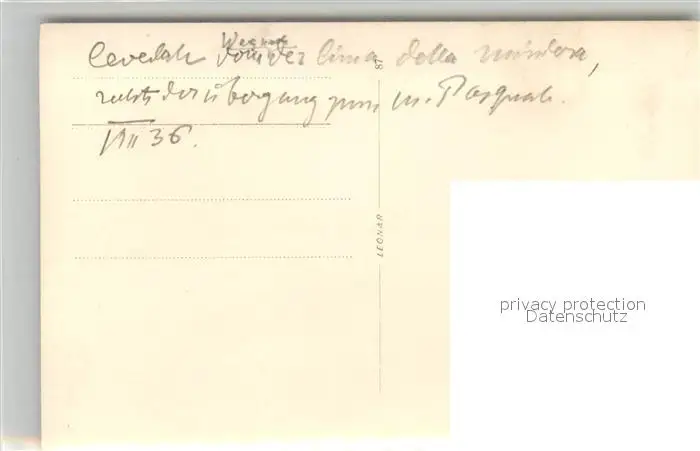 Cevedale von der Cima della Miniera,
rechts der Übergang zum M. Pasquale.
VIII 36.
87
LEONAR
privacy protection
Datenschutz